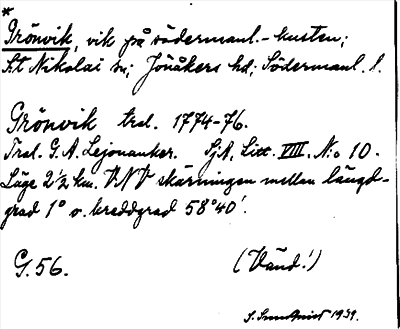 *
Grönvik, vik på södermanl.-kusten;
S:t Nikolai sn; Jönåkers hd; Södermanl. l.
Grönvik trol. 1774-76.
Trol. G. A. Lejonanker. SjA, Litt. VIII. N:o 10.
Läge 2 1/2 km. VNV skärningen mellan längd-
grad 1° o. breddgrad 58°40'.
G. 56. (Vänd!)
S. Sundqvist 1939.